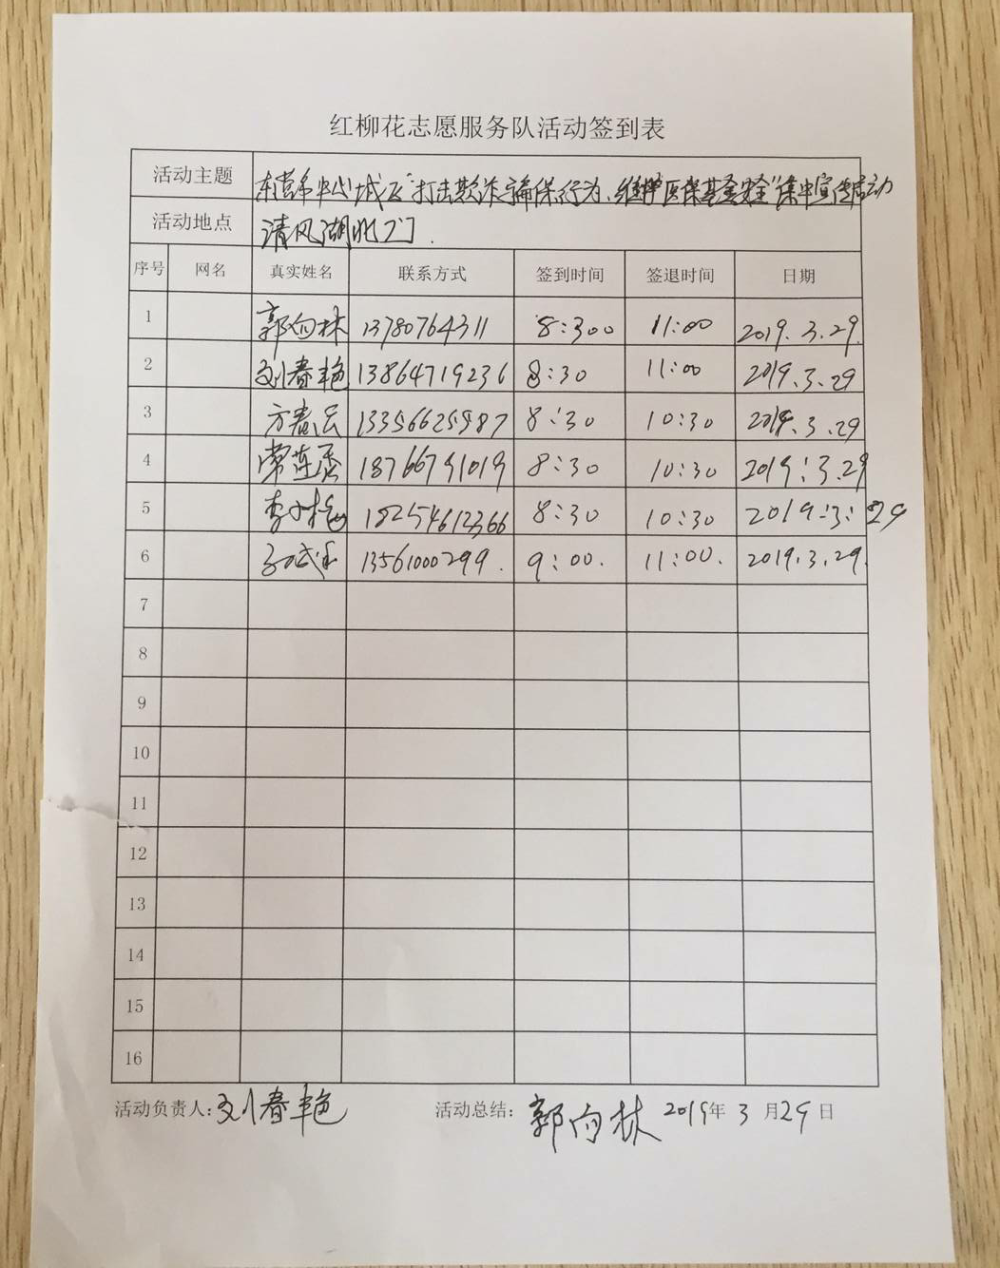 红柳花志愿服务队活动签到表
活动主题 东营市中心城区"打击欺诈骗保行为、维护医保基金安全"集中宣传活动
活动地点 清风湖北门.
序号 网名 真实姓名 联系方式 签到时间 签退时间 日期
1 郭向林 13780764311 8:300 11:00 2019.3.29.
2 刘春艳 13864719236 8:30 11:00 2019.3.29
3 方春云 13356625987 8:30 10:30 2019.3.29
4 常莲香 18766791019 8:30 10:30 2019:3.29
5 李 18254612366 8:30 10:30 2019:3:29
6 13561000299. 9:00. 11:00. 2019.3.29.
7
8
9
10
11
12
13
14
15
16
活动负责人:刘春艳 活动总结: 郭向林 2019年 3 月29 日